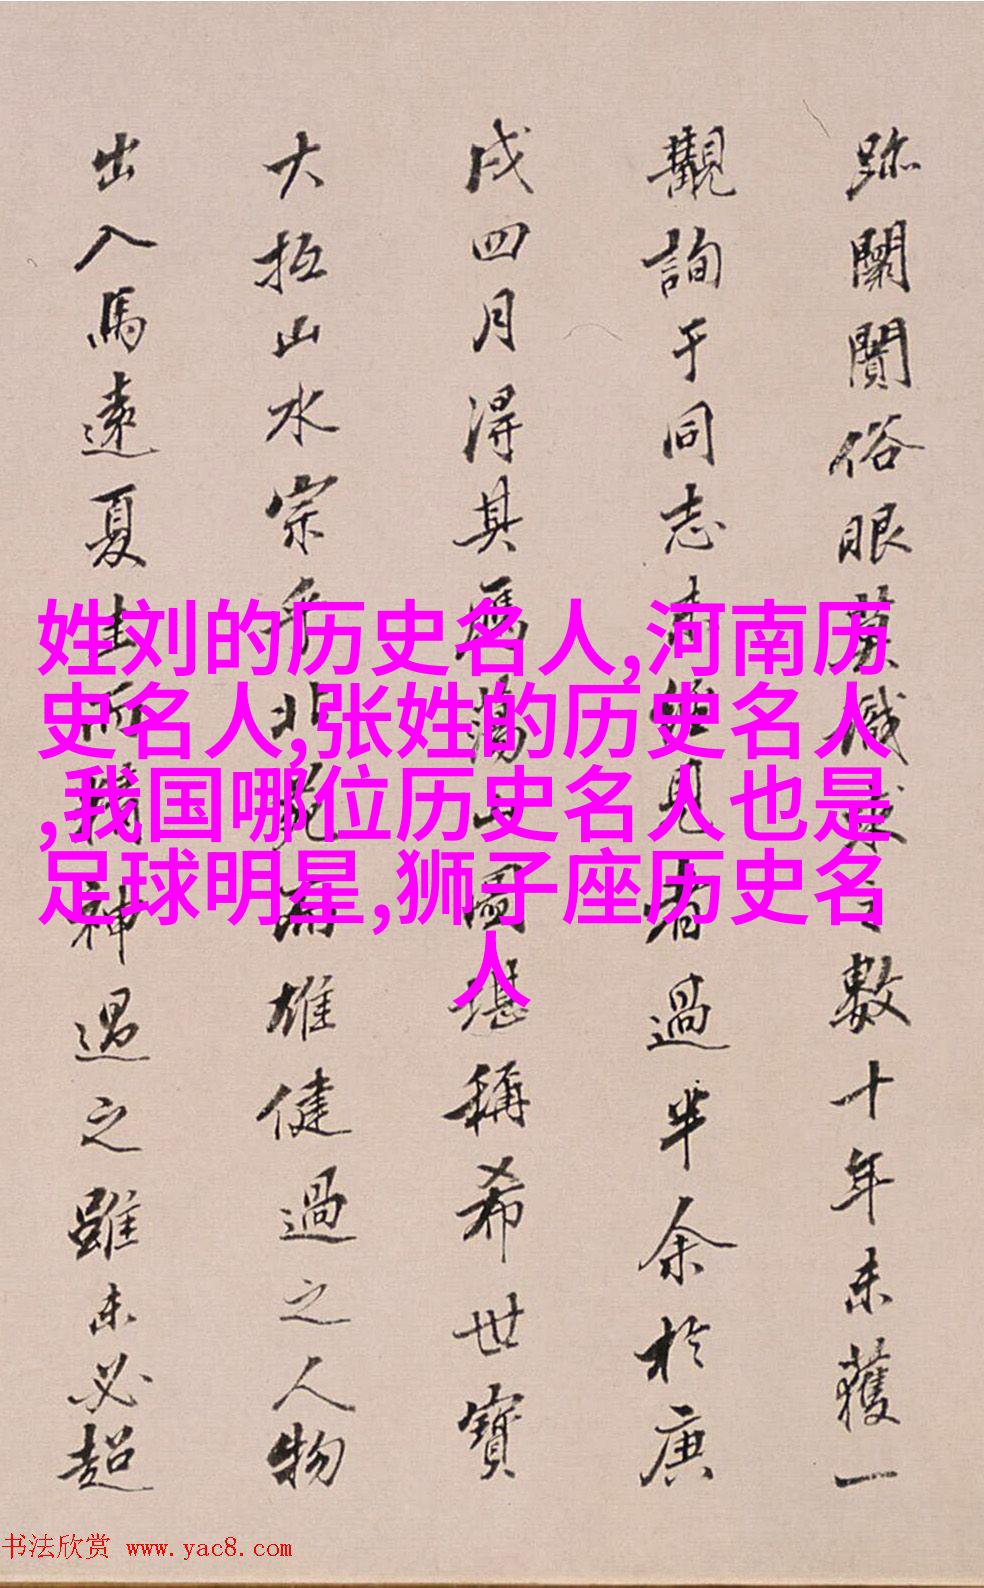 跡闤闠俗眼莫識求之數十年未獲一
觀詢于同志未見者過半余於庚
戌四月淂其馬蕩山圖堪稱希世寶
大抵山水宗乎北苑而雄健過之人物
出入馬遠夏圭而精神過之雖未必超
姓刘的历史名人,河南历
史名人,张姓的历史名人
,我国哪位历史名人也是
足球明星,狮子座历史名
人
书法欣赏 www.yac8.com